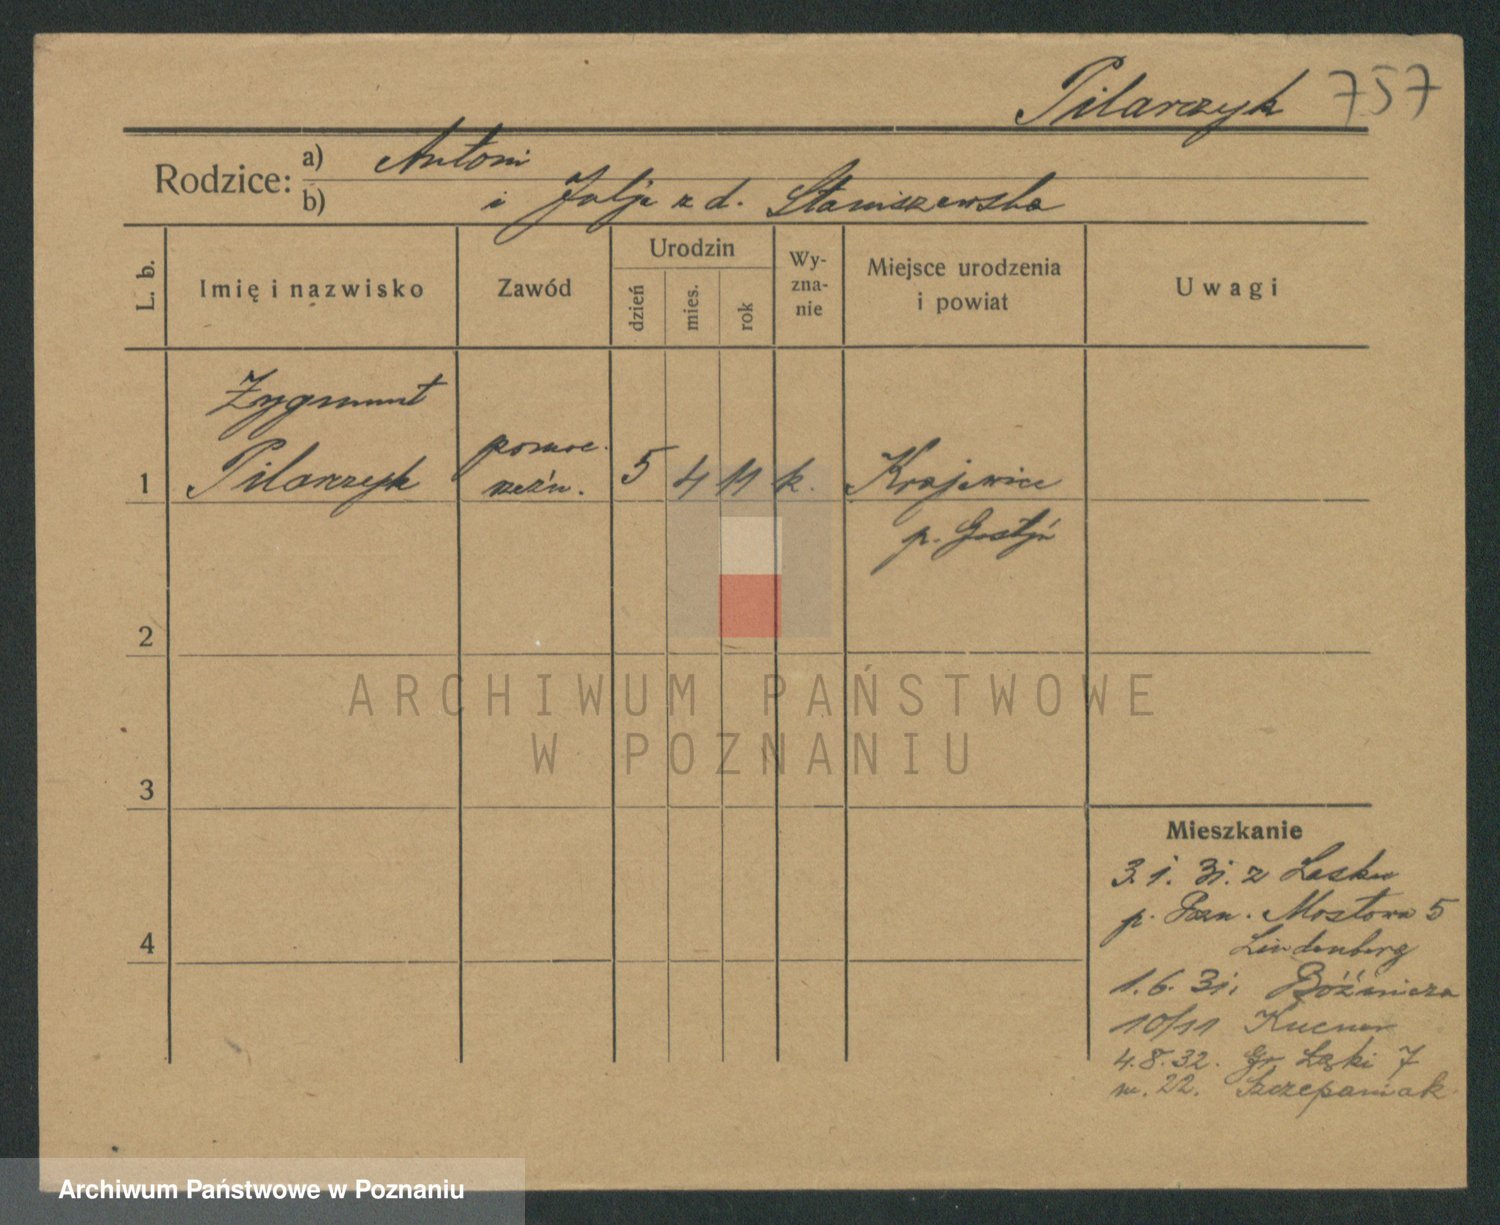 Pilarczyk 757
Rodzice:
a) Antoni
b) i Julja z d. Staniszewska
L. b.
Imię i nazwisko
Zawód
Urodzin
dzień
mies.
rok
Wy-
zna-
nie
Miejsce urodzenia
i powiat
Uwagi
Zygmunt
1 Pilarczyk
pomoc.
rzeźn.
5 4 11 k. Krajewice
p. Gostyń
2
3
4
Mieszkanie
3.1.31. z Lasku
p. Pozn. Mostowa 5
Lindenberg
1.6.31. Bóźnicza
10/11 Kucner
4.8.32. Gr. Łąki 7
m. 22. Szczepaniak
ARCHIWUM PAŃSTWOWE
W POZNANIU
Archiwum Państwowe w Poznaniu